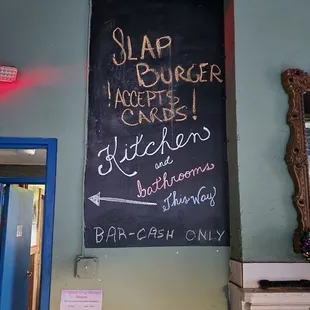 SLAP
BURGER
!ACCEPTS
CARDS!
Kitchen
and
bathrooms
This Way
BAR-CASH ONLY